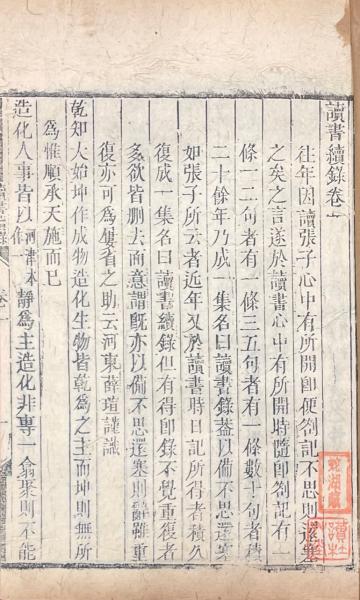 讀書續錄卷一
往年因讀張子心中有所開即便劄記不思則還塞
之矣之言遂於讀書心中有所開時隨即劄記有一
條一二句者有一條三五句者有一條數十句者積
二十餘年乃成一集名曰讀書錄蓋以備不思還塞
如張子所云者近年又於讀書時日記所得者積久
復成一集名曰讀書續錄但有得即錄不覺重復者
多欲皆刪去而意謂旣亦以備不思還塞則辭雖重
復亦可爲屢省之助云河東薛瑄謹識
乾知大始坤作成物造化生物皆乾爲之主而坤則無所
爲惟順承天施而已
造化人事皆以
作一
河津本
靜爲主造化非專一翕聚則不能